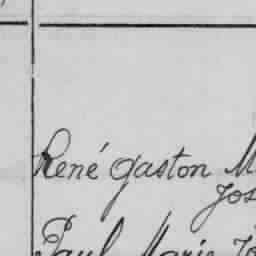 René Gaston M
Jos
Paul Marie Jo